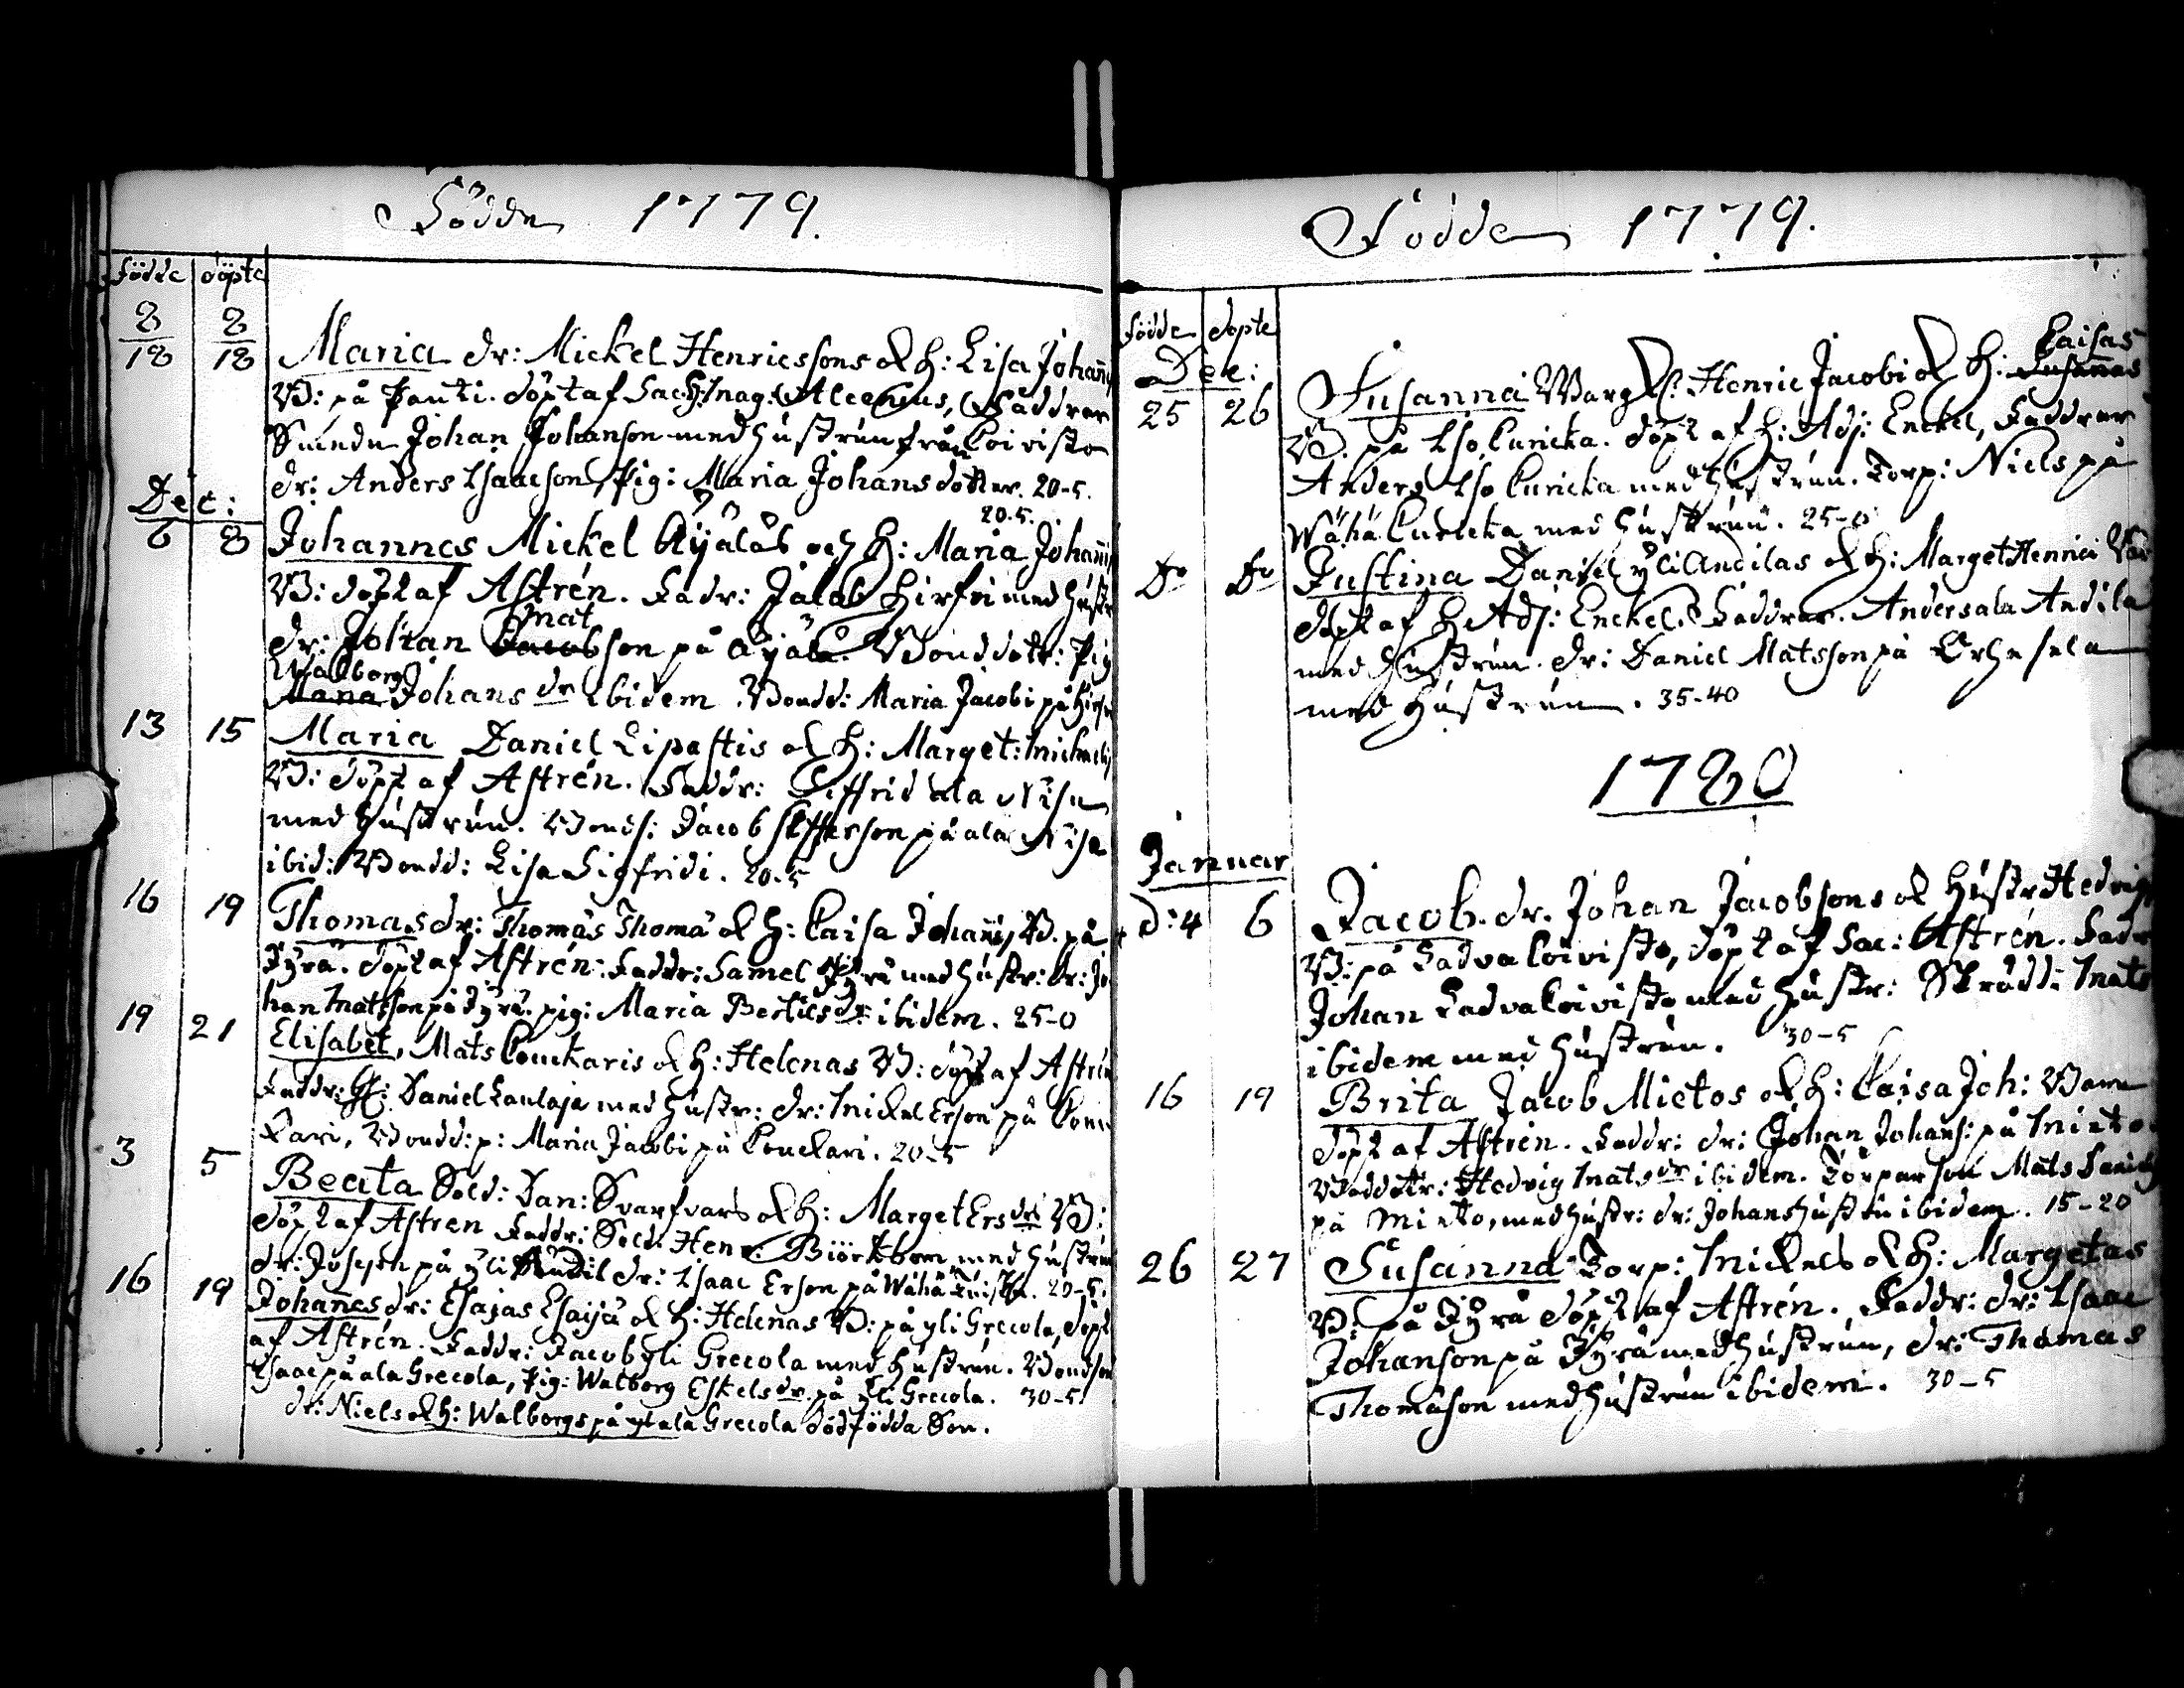 Födde 1779.
födde döpte
8/18 8/18 Maria dr: Mickel Henricssons & H: Lisa Johann
B: på Panti. döpt af Sac: H: Mag: Alcenius, Faddrar
Smeden Johan Johanson med hustrun från Koivisto
dr: Anders Isaacson, pig: Maria Johans dotter. 20-5.
Dec: 20-5.
6 8 Johannes Mickel Äyäläs och H: Maria Johannis
B: döpt af Astrén. Fadr: Jacob Hirfvi med hustr
Mat
dr: Johan Jacobson på Äyälä. Bonddotr: Pig
Walborg
Maria Johans dr ibidem. Bondd: Maria Jacobi på Hirfv
13 15 Maria Daniel Lipastis & H: Marget: Michaelis
B: döpt af Astrén. Faddr: Siffrid ala Nisu
med hustrun. Bonds: Jacob Sifferson på ala Nisu
ibid: Bondd: Lisa Sigfridi. 20-5
16 19 Thomas dr: Thomas Thomä & H: Caisa Johannis, B. på
Jyrä. döpt af Astrén. Faddr: Samel Jyrä med hustr: dr: Jo
han Matsson på Jyrä. pig: Maria Bertils dr: ibidem. 25-0
19 21 Elisabet, Mats Kouckaris & H: Helenas B: döpt af Astrén
Faddr: Gf: Daniel Laulaja med hustr: dr: Mickel Erson på Kouc
kari, Bondd: p: Maria Jacobi på Couckari. 20-5
3 5 Beata Sold: Dan: Svarfvars & H: Marget Ers dr: B:
döpt af Astren Faddr: Sold: Henr: Biörkbom med hustrun
dr: Joseph på yli Andil dr: Isaac Erson på Wähä 20-5.
16 19 Johannes dr: Esajas Esaijä & H: Helenas B: på yli Grecola, döpt
af Astrén. Faddr: Jacob yli Grecola med hustrun. Bondson
Isaac på ala Grecola, Pig: Walborg Eskels dr på yli Grecola. 30-5
dr: Niels & H: Walborgs på ala Grecola dödfödda Son.
Födde 1779.
födde döpte
Dec: Caisas
25 26 Susanna Warg Henric Jacobi & H: Susannas
B. på Iso Curicka. döpt af H: Adj: Enckel, Faddrar
Anders Iso Curicka med hustrun. Torp: Niels på
Wähä Curicka med hustrun. 25-0
Do Do Justina Daniel yli Andilas & H: Marget Henrici Bar
döpt af H Adj: Enckel. Faddrar. Anders ala Andila
med hustrun. dr: Daniel Matsson på
med hustrun. 35-40
1780
Januar
d: 4 6 Jacob. dr. Johan Jacobsons & hustr Hedvigs
B: på Ladva Koivisto, döpt af Sac: Astrén. Fadr
Johan Ladva Koivisto med hustr: Skrädd: Mats
ibidem med hustrun. 30-5
16 19 Brita Jacob Mietos & H: Caisa Joh: Barn
döpt af Astrén. Faddr: dr: Johan Johans: på Mieto
Bonddotr: Hedvig Mats dr ibidem. Torparson Mats Daniels
på Mieto, med hustr: dr: Johans hustru ibidem. 15-20
26 27 Susanna Torp: Mickels & H: Margetas
B: på Jyrä döpt af Astrén. Faddr: dr: Isaac
Johanson på Jyrä med hustrun, dr: Thomas
Thomäson med hustrun ibidem. 30-5